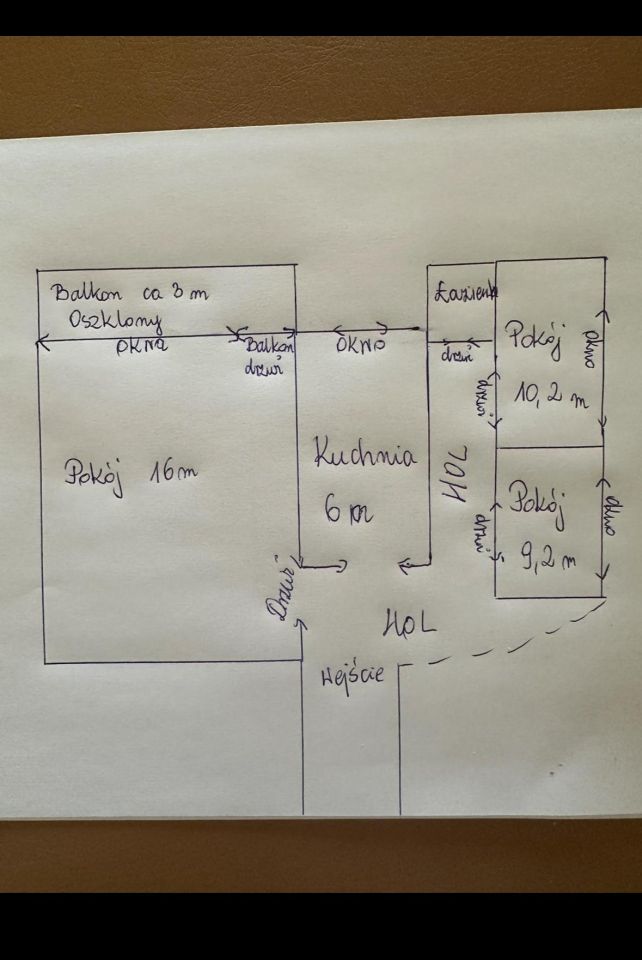 Balkon ca 3 m
Oszklony
OKNA
Balkon
drzwi
OKNO
Łazienk
drzwi
Pokój
10,2 m
okno
drzwi
Pokój 16 m
Kuchnia
6 m
HOL
Pokój
9,2 m
okno
drzwi
Drzwi
HOL
Wejście